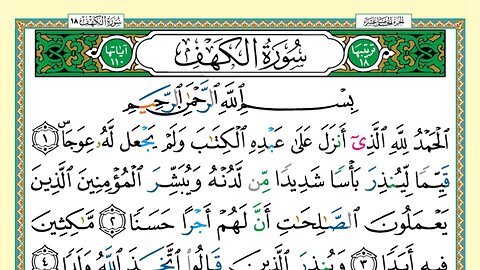 سُورَةُ الكَهۡف ١٨
الجزء الخامس عشر
ترتيبها ١٨
سُورَةُ الكَهۡفِ
آياتها ١١٠
بِسۡمِ ٱللَّهِ ٱلرَّحۡمَٰنِ ٱلرَّحِيمِ
ٱلۡحَمۡدُ لِلَّهِ ٱلَّذِيٓ أَنزَلَ عَلَىٰ عَبۡدِهِ ٱلۡكِتَٰبَ وَلَمۡ يَجۡعَل لَّهُۥ عِوَجَاۜ ١
قَيِّمٗا لِّيُنذِرَ بَأۡسٗا شَدِيدٗا مِّن لَّدُنۡهُ وَيُبَشِّرَ ٱلۡمُؤۡمِنِينَ ٱلَّذِينَ
يَعۡمَلُونَ ٱلصَّٰلِحَٰتِ أَنَّ لَهُمۡ أَجۡرًا حَسَنٗا ٢ مَّٰكِثِينَ
فِيهِ أَبَدٗا ٣ وَيُنذِرَ ٱلَّذِينَ قَالُواْ ٱتَّخَذَ ٱللَّهُ وَلَدٗا ٤